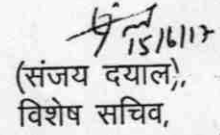 15/6/17
(संजय दयाल),
विशेष सचिव,